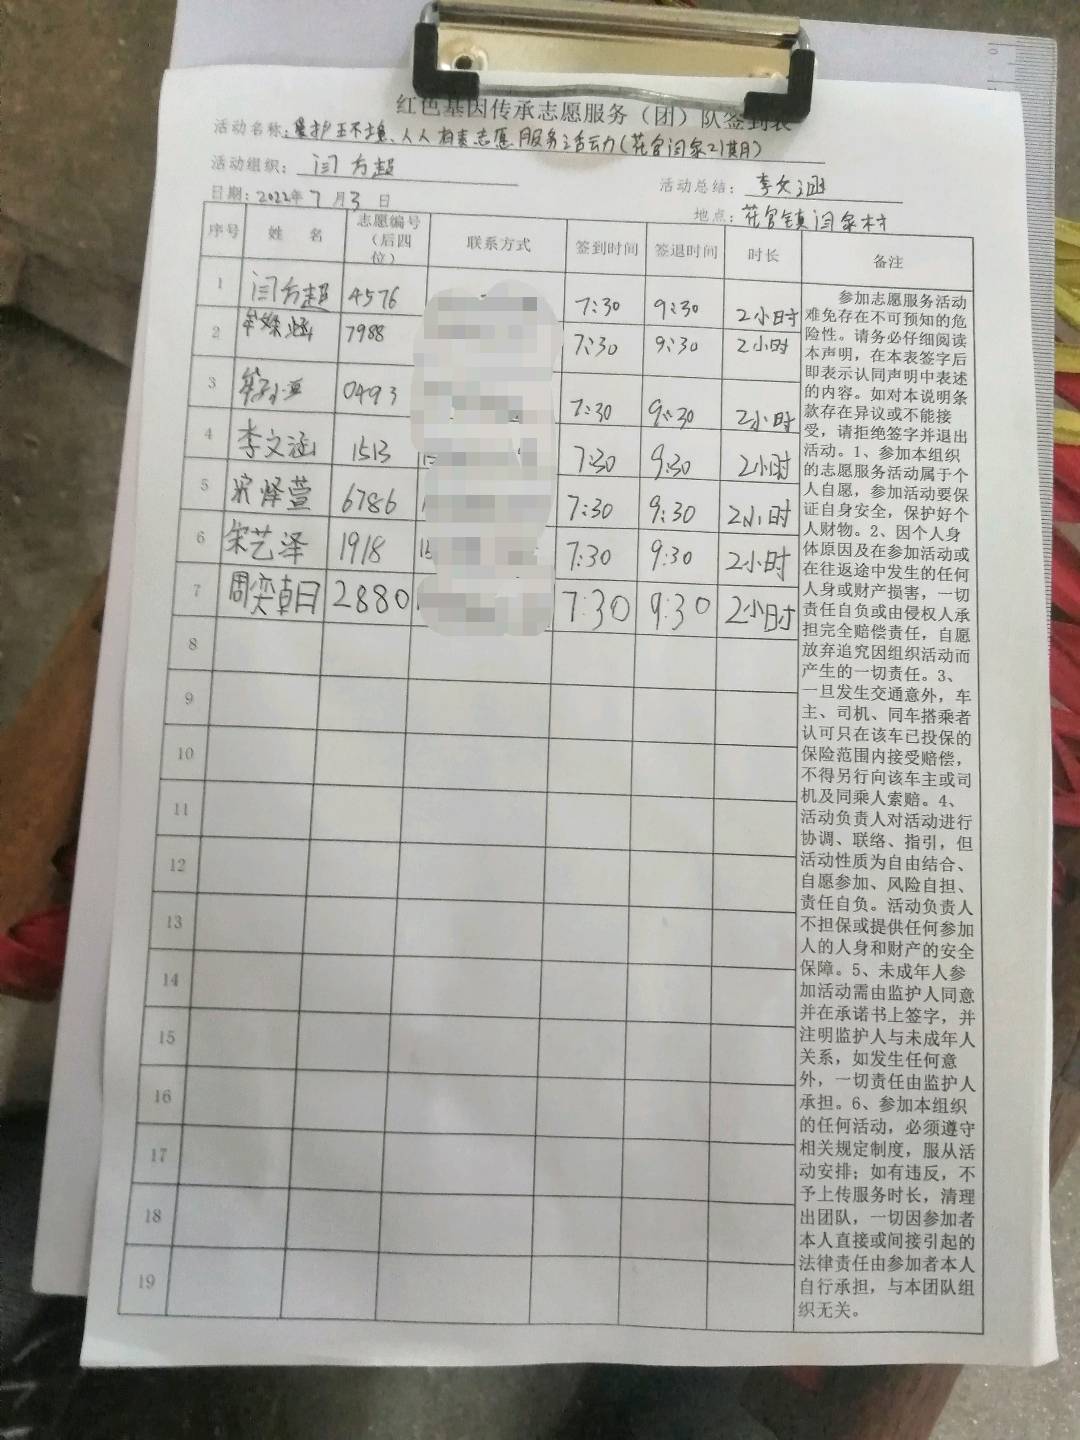 红色基因传承志愿服务（团）队签到表
活动名称：爱护环境、人人有责志愿服务活动(花官闫家21期)
活动组织：闫方超
活动总结：李文涵
日期：2022年7月3日
地点：花官镇闫家村
序号 姓 名 志愿编号（后四位） 联系方式 签到时间 签退时间 时长 备注
1 闫方超 4576 7:30 9:30 2小时
2 7988 7:30 9:30 2小时
3 0493 7:30 9:30 2小时
4 李文涵 1513 7:30 9:30 2小时
5 宋烨萱 6786 7:30 9:30 2小时
6 宋艺泽 1918 7:30 9:30 2小时
7 周奕朝 2880 7:30 9:30 2小时
8
9
10
11
12
13
14
15
16
17
18
19
参加志愿服务活动
难免存在不可预知的危
险性。请务必仔细阅读
本声明，在本表签字后
即表示认同声明中表述
的内容。如对本说明条
款存在异议或不能接
受，请拒绝签字并退出
活动。1、参加本组织
的志愿服务活动属于个
人自愿，参加活动要保
证自身安全，保护好个
人财物。2、因个人身
体原因及在参加活动或
在往返途中发生的任何
人身或财产损害，一切
责任自负或由侵权人承
担完全赔偿责任，自愿
放弃追究因组织活动而
产生的一切责任。3、
一旦发生交通意外，车
主、司机、同车搭乘者
认可只在该车已投保的
保险范围内接受赔偿，
不得另行向该车主或司
机及同乘人索赔。4、
活动负责人对活动进行
协调、联络、指引，但
活动性质为自由结合、
自愿参加、风险自担、
责任自负。活动负责人
不担保或提供任何参加
人的人身和财产的安全
保障。5、未成年人参
加活动需由监护人同意
并在承诺书上签字，并
注明监护人与未成年人
关系，如发生任何意
外，一切责任由监护人
承担。6、参加本组织
的任何活动，必须遵守
相关规定制度，服从活
动安排；如有违反，不
予上传服务时长，清理
出团队，一切因参加者
本人直接或间接引起的
法律责任由参加者本人
自行承担，与本团队组
织无关。